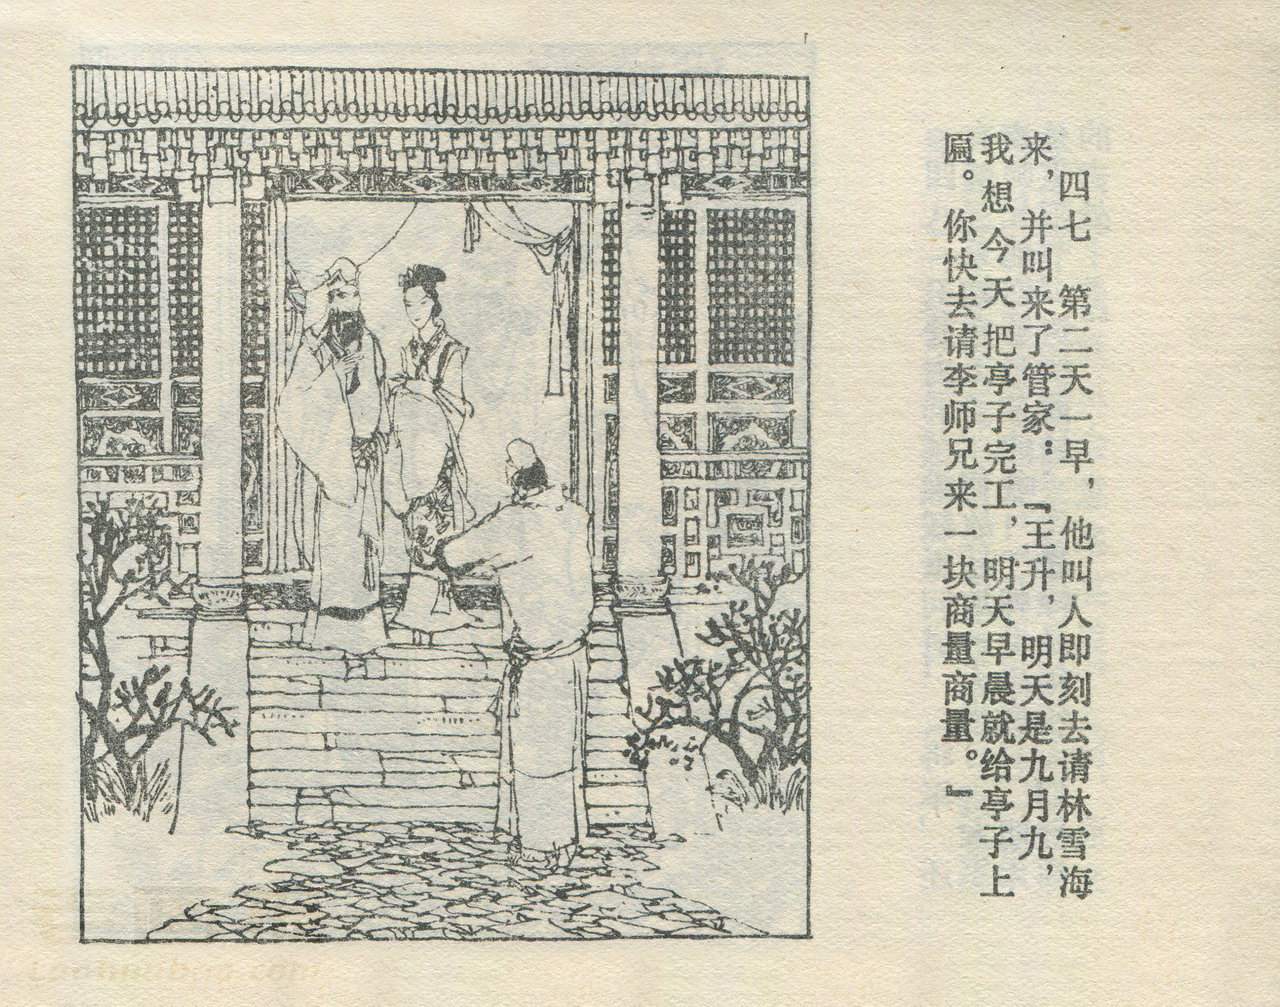 四七 第二天一早，他叫人即刻去请林雪海
来，并叫来了管家：『王升，明天是九月九，
我想今天把亭子完工，明天早晨就给亭子上
匾。你快去请李师兄来一块商量商量。』